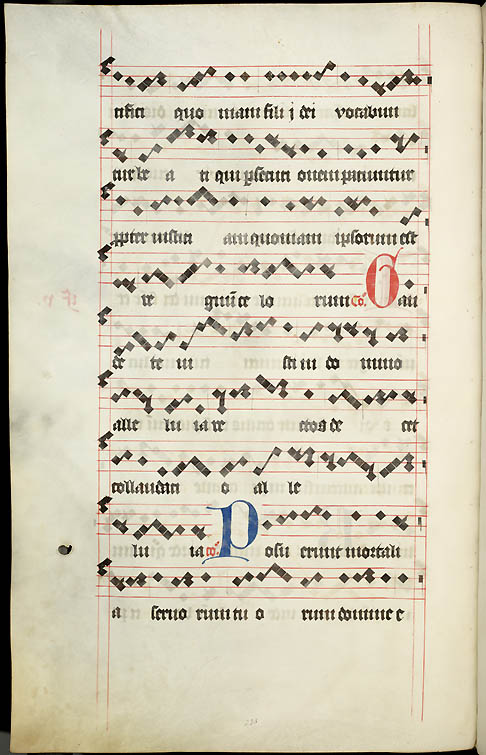 cifici quo niam fili j dei vocabun
tur be a ti qui psecuti onem paciuntur
ppter iusticiam quoniam ipsorum est
re gnū ce lo rum Cō. Gau
de te iu sti in do mino
alle lu ia re ctos de cet
collaudati o al le
lu ia cō. Posu erunt mortali
a seruo rum tu o rum domine e